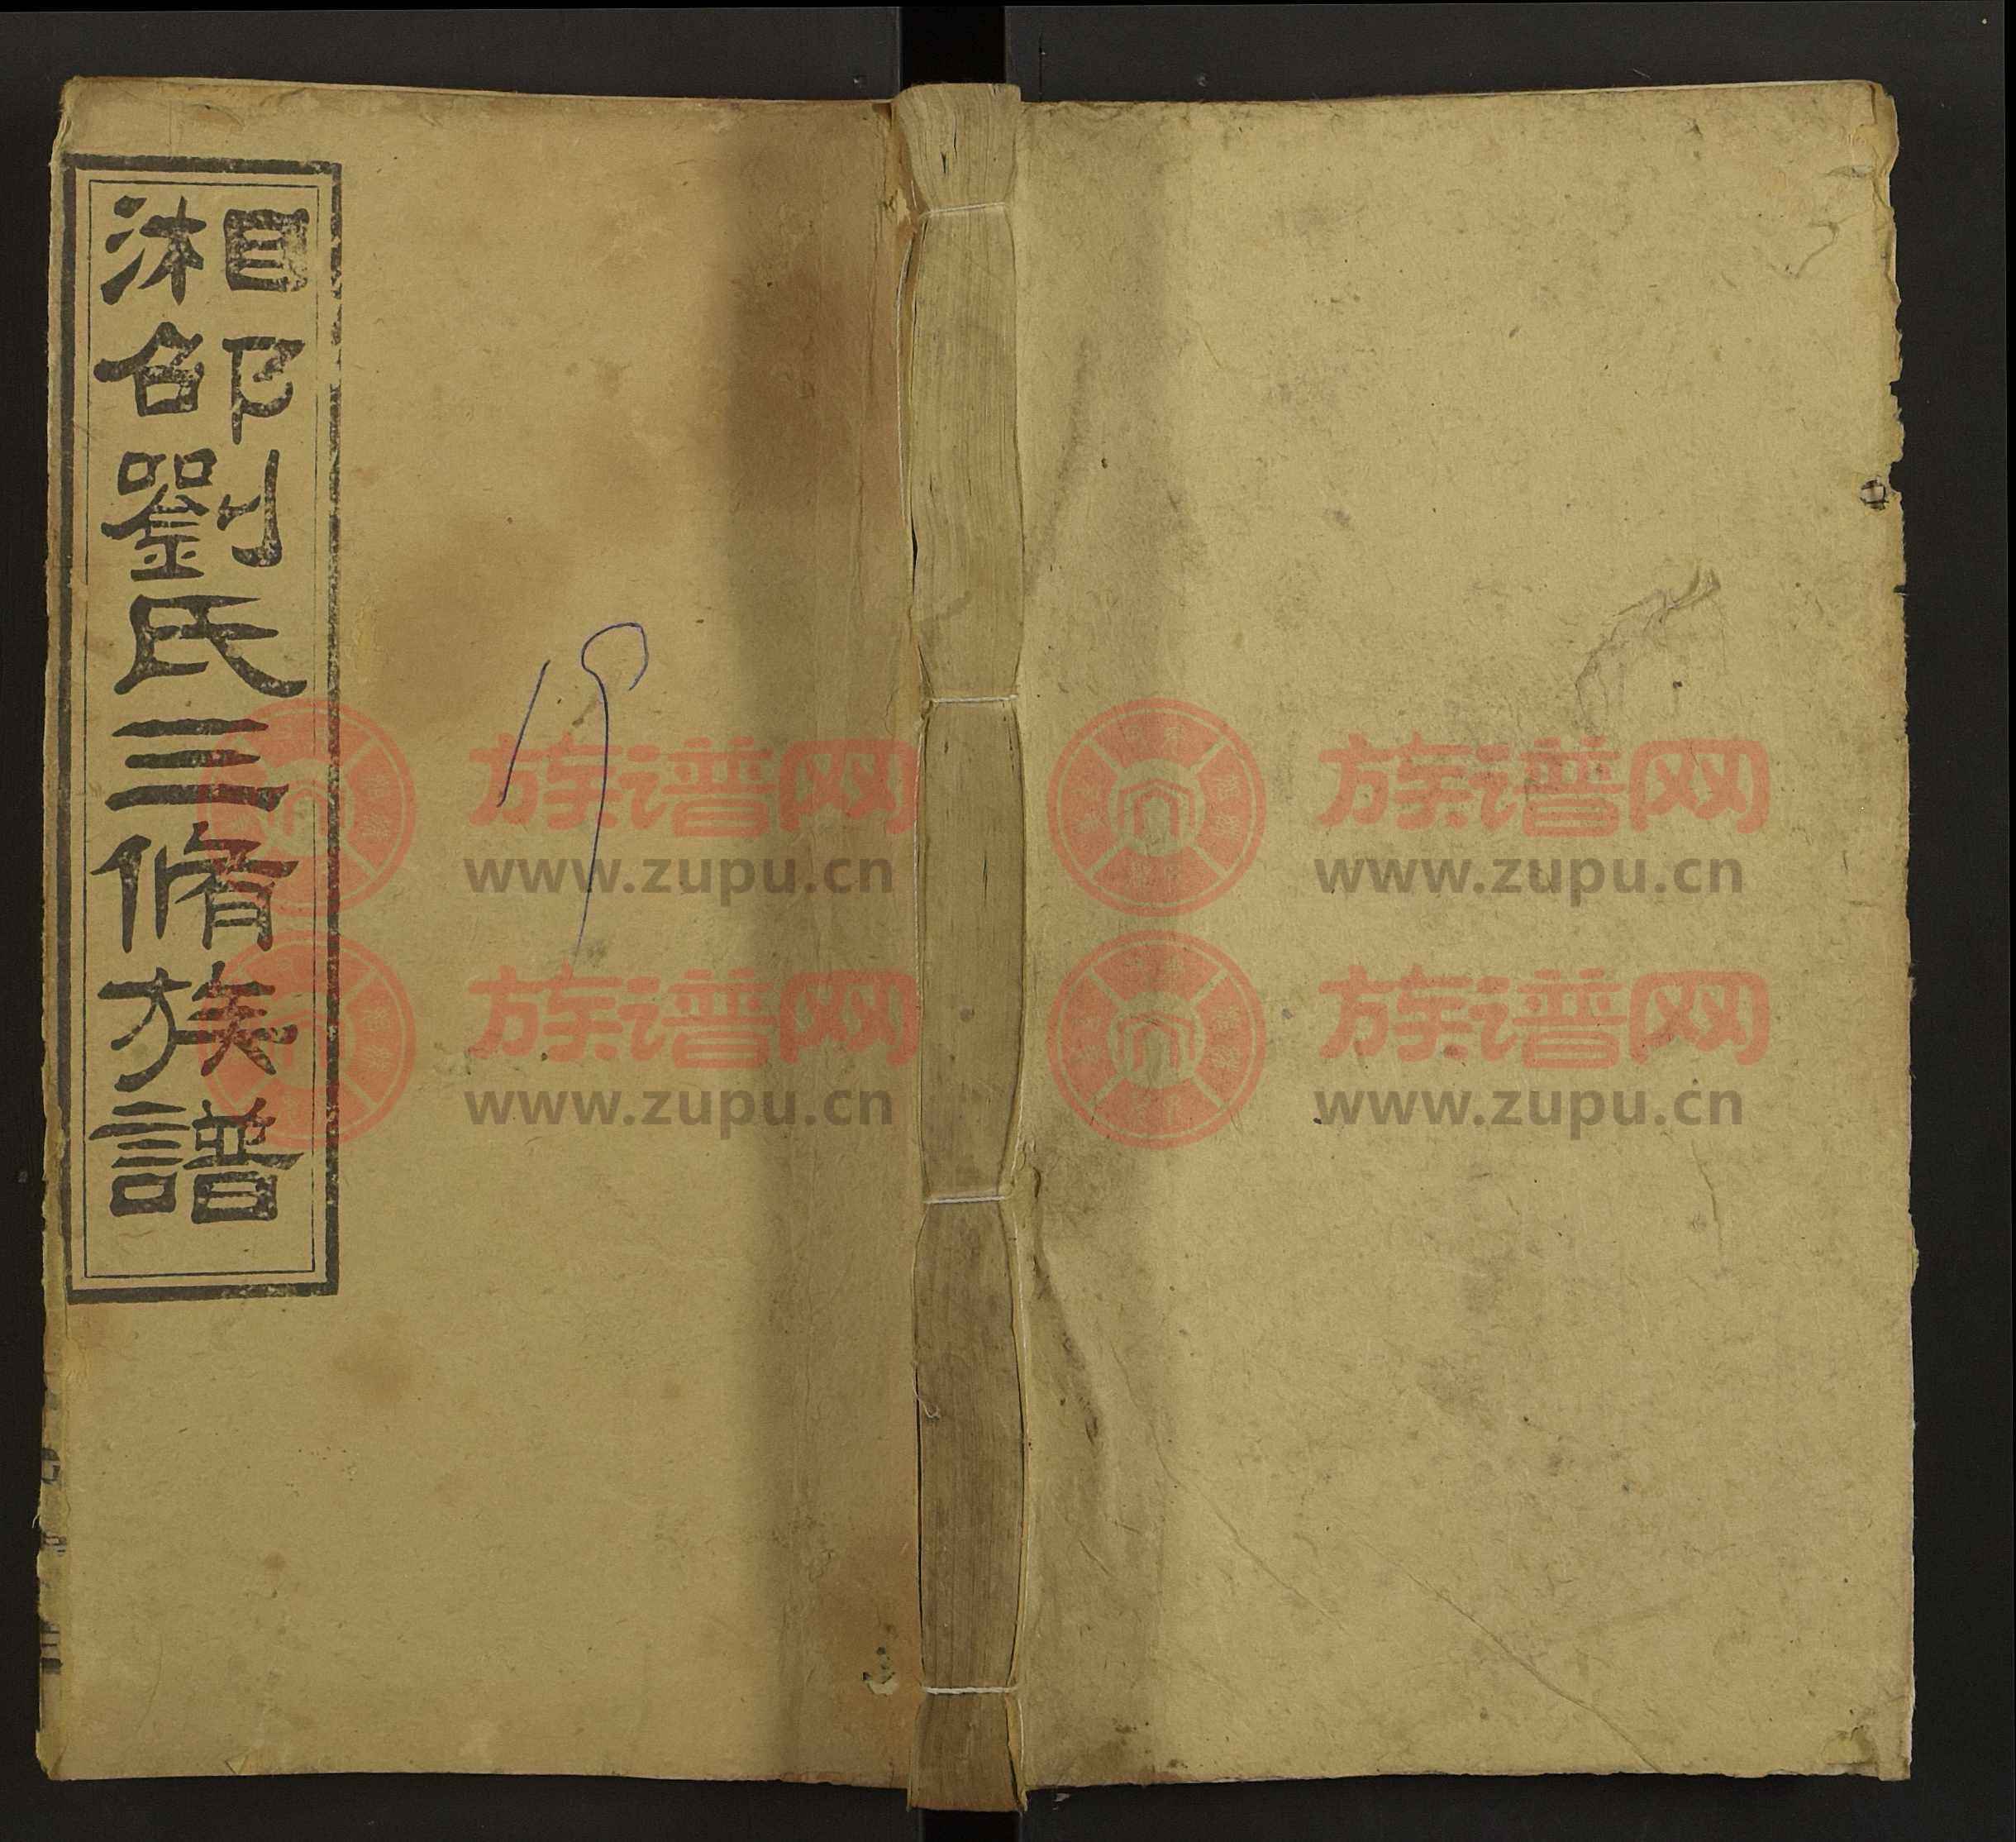 湘邵劉氏三脩族譜
19
族谱网
www.zupu.cn
族谱网
www.zupu.cn
族谱网
www.zupu.cn
族谱网
www.zupu.cn